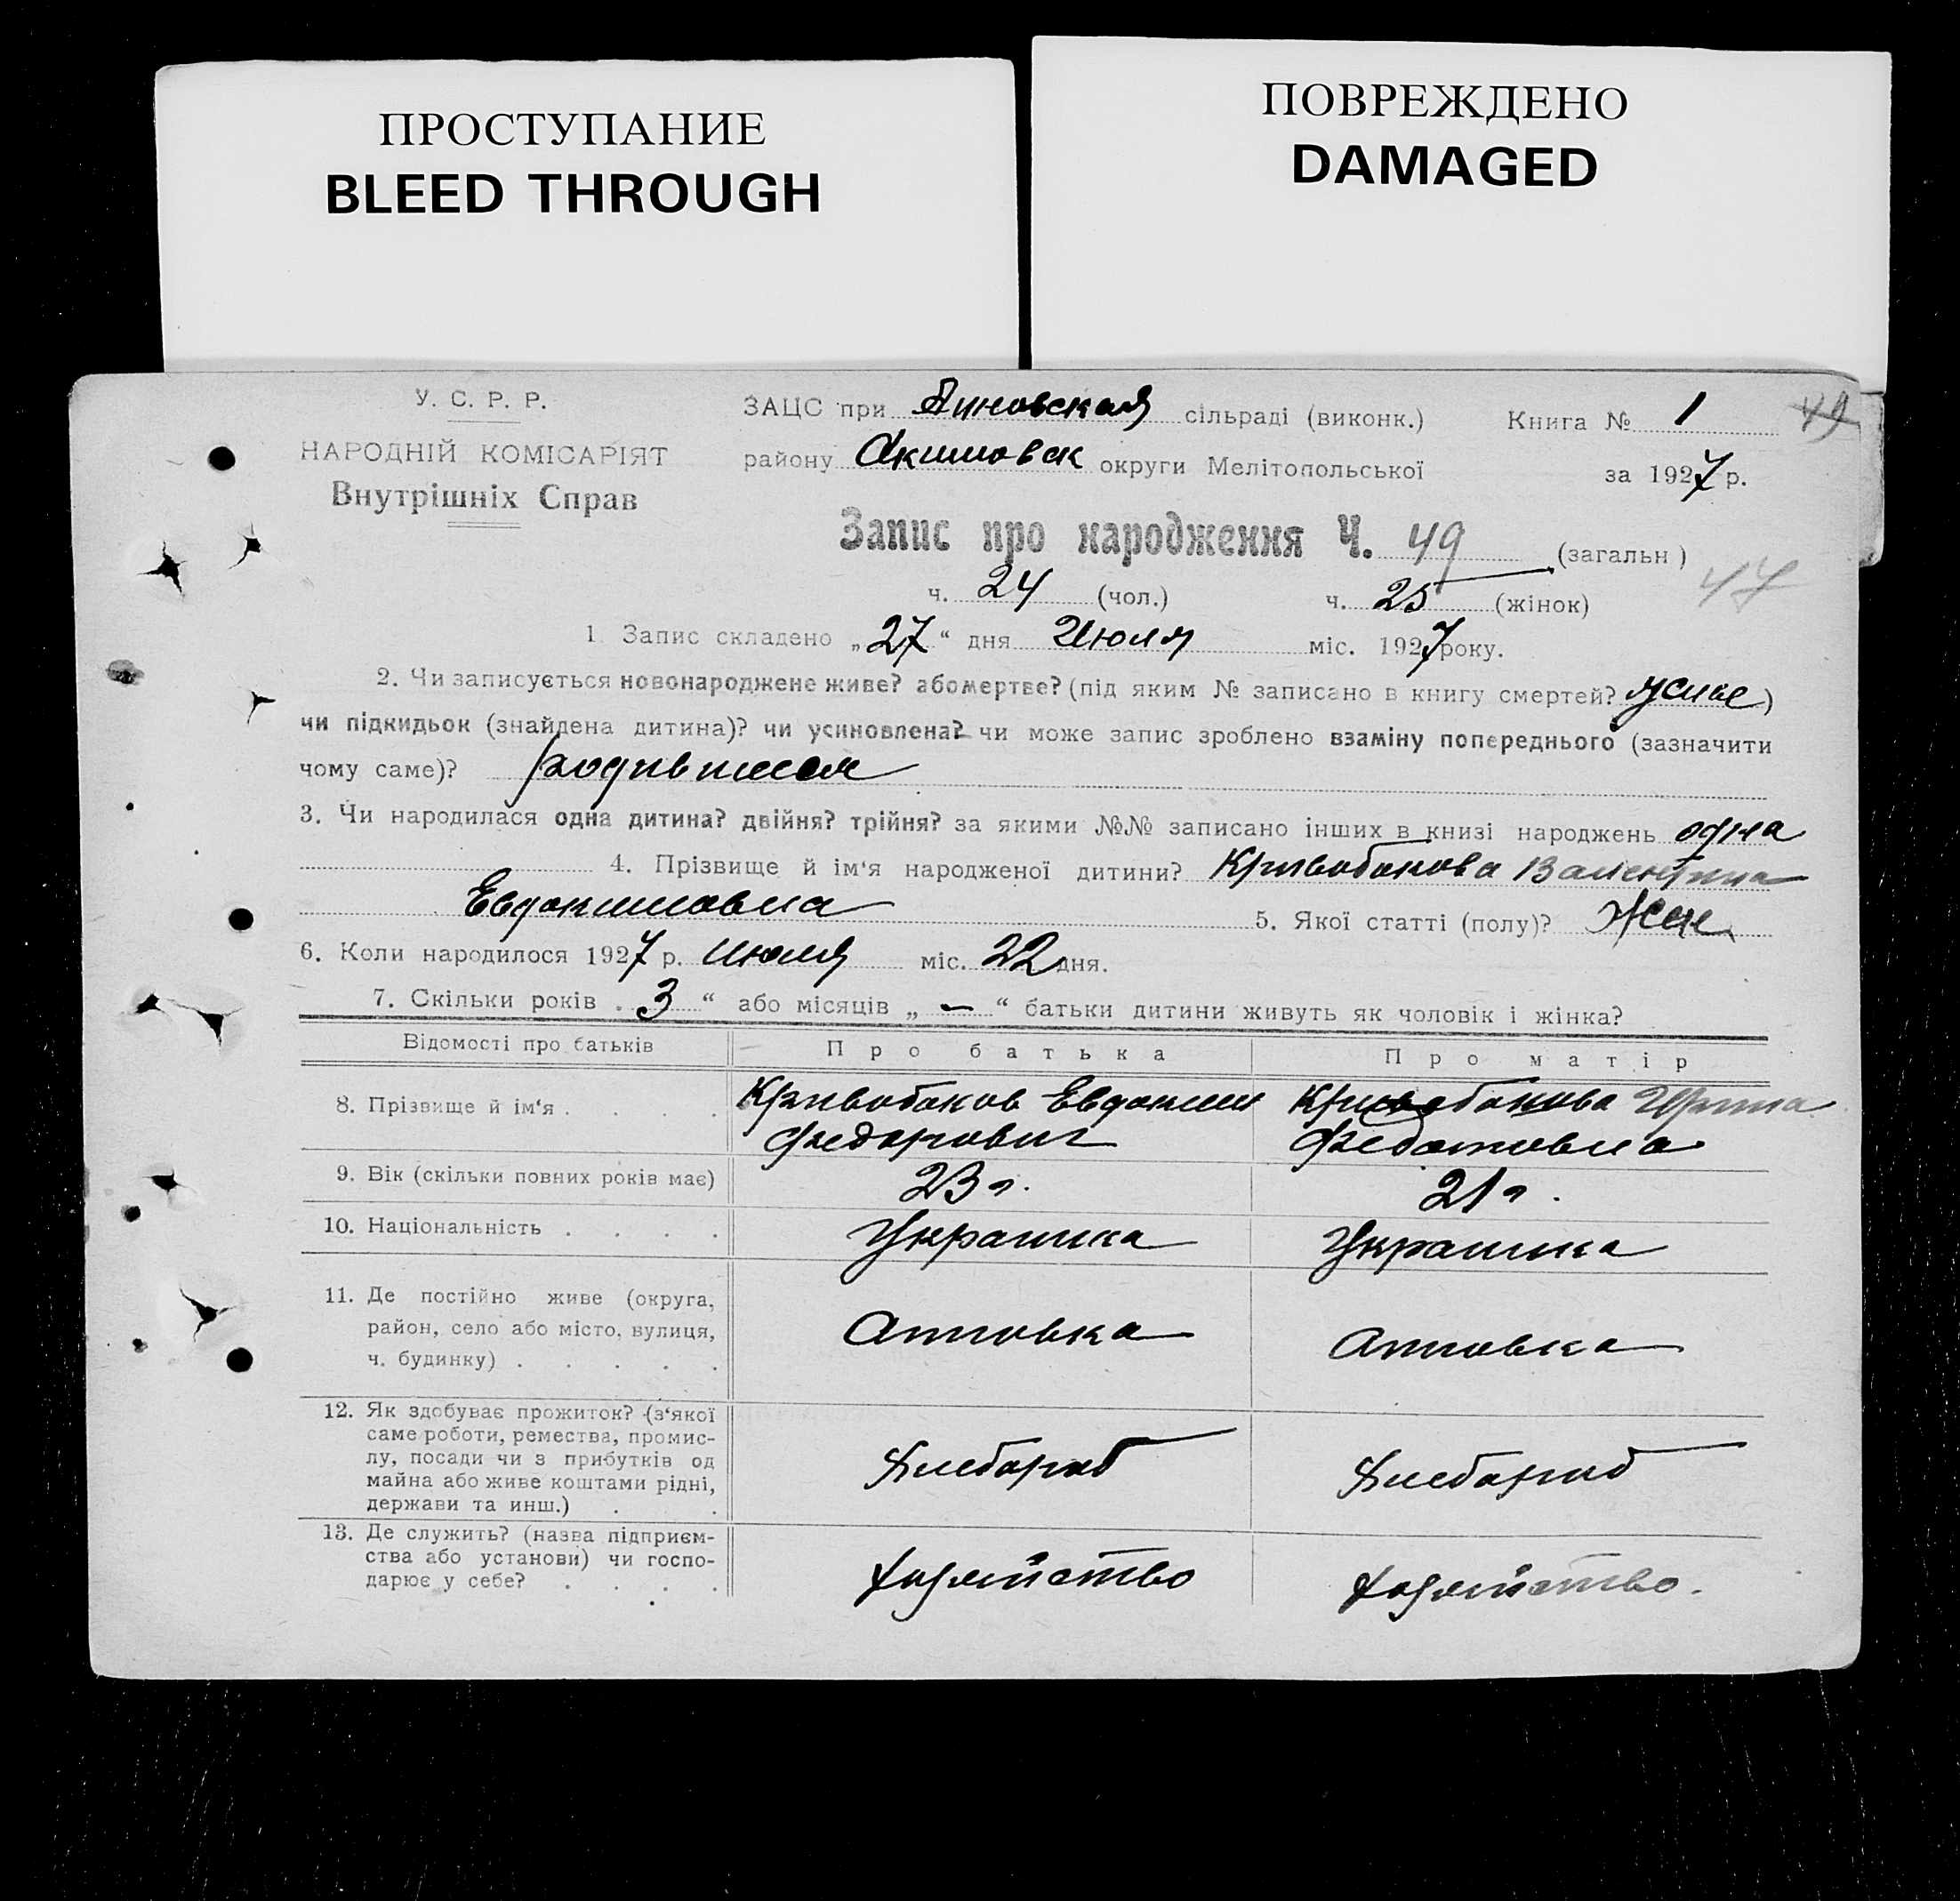 ПРОСТУПАНИЕ
BLEED THROUGH
ПОВРЕЖДЕНО
DAMAGED
У. С. Р. Р.
НАРОДНІЙ КОМІСАРІЯТ
Внутрішніх Справ
ЗАЦС при сільраді (виконк.) Книга № 1 49
району Акимовск округи Мелітопольської за 1927 р.
Запис про народження Ч. 49 (загальн)
ч. 24 (чол.) ч. 25 (жінок) 47
1. Запис складено „27“ дня Июля міс. 1927 року.
2. Чи записується новонароджене живе? або мертве? (під яким № записано в книгу смертей? )
чи підкидьок (знайдена дитина)? чи усиновлена? чи може запис зроблено взаміну попереднього (зазначити
чому саме)? родившися
3. Чи народилася одна дитина? двійня? трійня? за якими №№ записано інших в книзі народжень одна
4. Прізвище й ім‘я народженої дитини? Кривобокова Валентина
Евдокимовна 5. Якої статті (полу)? Жен.
6. Коли народилося 1927 р. Июля міс. 22 дня.
7. Скільки років „3“ або місяців „—“ батьки дитини живуть як чоловік і жінка?
Відомості про батьків Про батька Про матір
8. Прізвище й ім‘я . . . . Кривобоков Евдоким Кривобокова Ирина
Федорович Федотовна
9. Вік (скільки повних років має) 23 г. 21 г.
10. Національність . . . . Украинка Украинка
11. Де постійно живе (округа,
район, село або місто, вулиця,
ч. будинку) . . . . .
12. Як здобуває прожиток? (з‘якої
саме роботи, ремества, промис-
лу, посади чи з прибутків од
майна або живе коштами рідні,
держави та инш.) . . Хлебороб Хлебороб
13. Де служить? (назва підприєм-
ства або установи) чи госпо-
дарює у себе? . . . . хозяйство хозяйство.